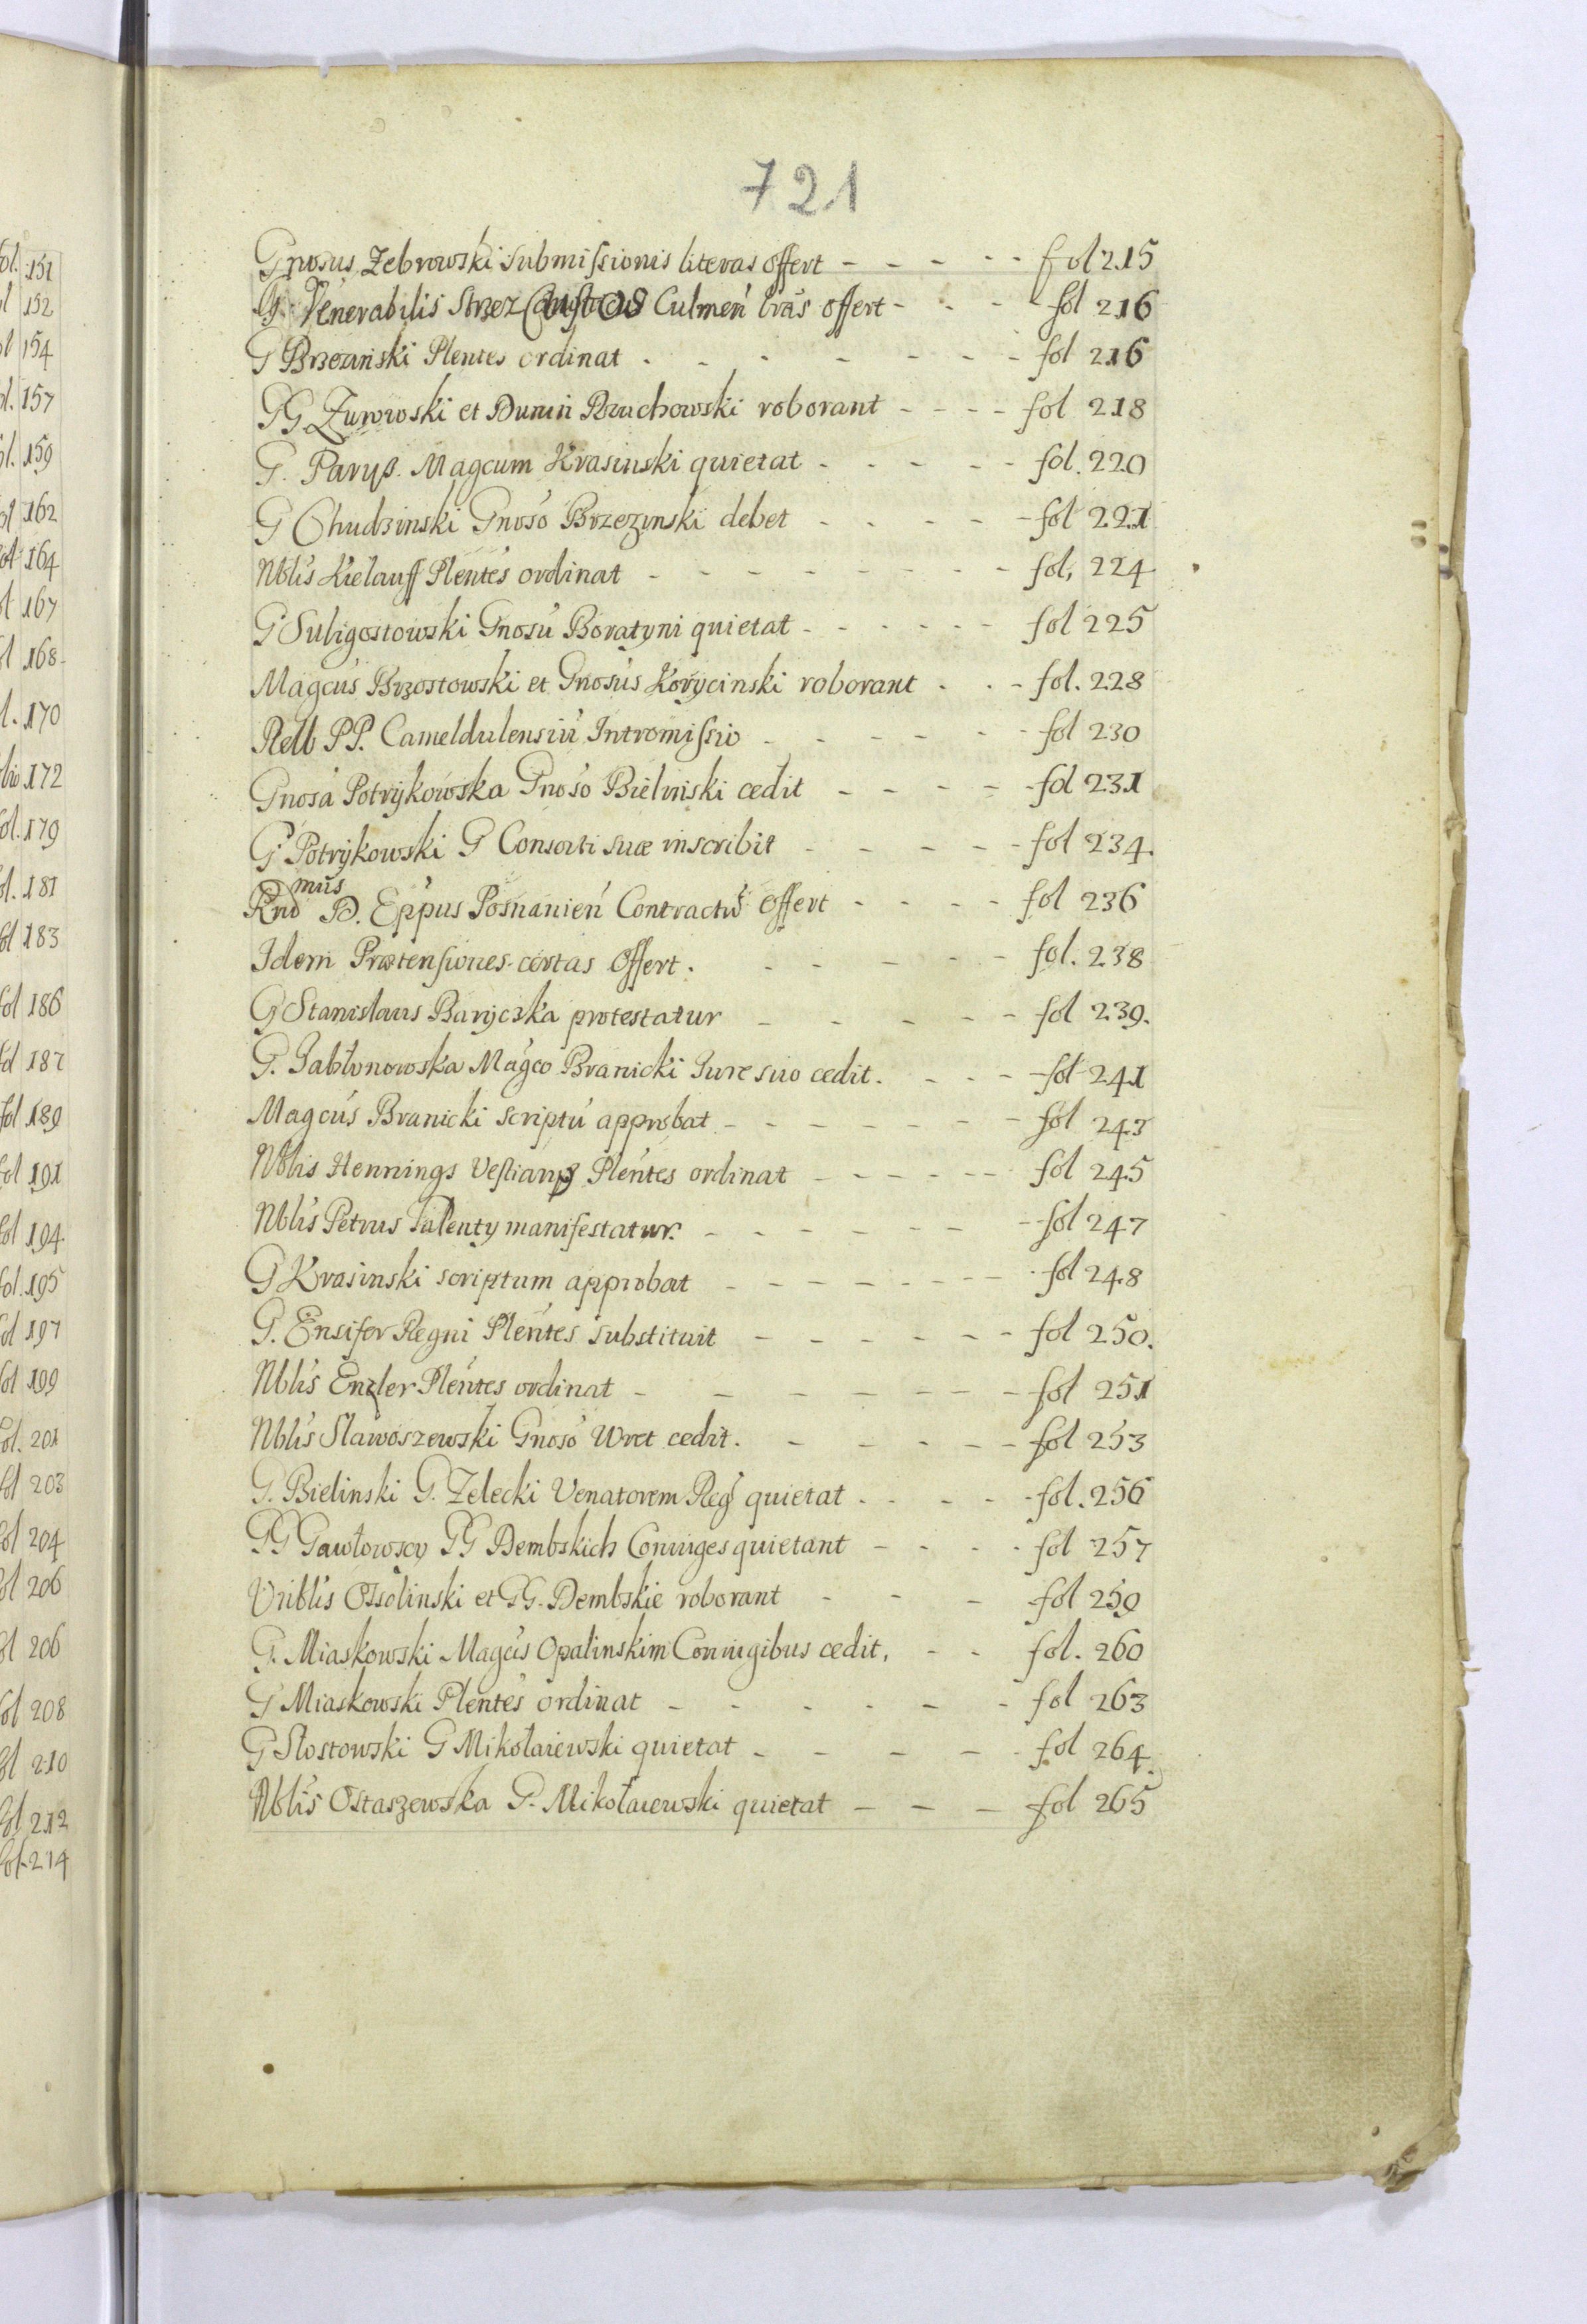 721
Gnosus Zebrowski submissionis literas offert - - - - - fol 215
G. Venerabilis Strzez Custos Culmeń lrās offert - - - fol 216
G Brzezinski Plentes ordinat - - - - - - - fol 216
GG Zurowski et Dunin Bruchowski roborant - - - - fol 218
G. Parys. Magcum Krasinski quietat - - - - - fol. 220
G Chudzinski Gnosó Brzezinski debet - - - - - fol 221
Nblís Kielauff Plentés ordinat - - - - - - - - fol, 224
G Suligostowski Gnosú Boratyni quietat - - - - - - fol 225
Magcús Brzostowski et Gnosús Korycinski roborant - - - fol. 228
Rell PP. Cameldulensiú Intromissio - - - - - - fol 230
Gnosá Potrykowska Gnosó Bielinski cedit - - - - - fol 231
G. Potrykowski G Consorti suæ inscribit - - - - - fol 234.
Rndmūs D. Eppus Posnanień Contractú offert - - - - fol 236
Idem Prætensiones certas offert. - - - - - fol. 238
G Stanislaus Baryczka protestatur - - - - - fol 239.
G. Jabłonowska Magco Branicki Jure suo cedit. - - - fol 241
Magcús Branicki scriptú approbat - - - - - - - fol 243
Nblis Hennings Plentes ordinat - - - - - - fol 245
Nblís Petrus Talenty manifestatur. - - - - - - fol 247
G Krasinski scriptum approbat - - - - - - - - fol 248
G. Ensifer Regni Plentes substituit - - - - - - fol 250.
Nblís Enzler Plentes ordinat - - - - - - - fol 251
Nblís Sławoszewski Gnosó Wret cedit. - - - - - fol 253
G. Bielinski G. Zelecki Venatorem Reg quietat - - - - fol. 256
GG Gawłowscy GG Dembskich Coniuges quietant - - - - fol 257
Vriblís Ossolinski et GG. Dembskie roborant - - - fol 259
G. Miaskowski Magcis Opalinskim Coniugibus cedit, - - fol. 260
G Miaskowski Plentés ordinat - - - - - - fol 263
G Słostowski G Mikołaiewski quietat - - - - - fol 264.
Nblís Ostaszewska G. Mikołaiewski quietat - - - fol 265